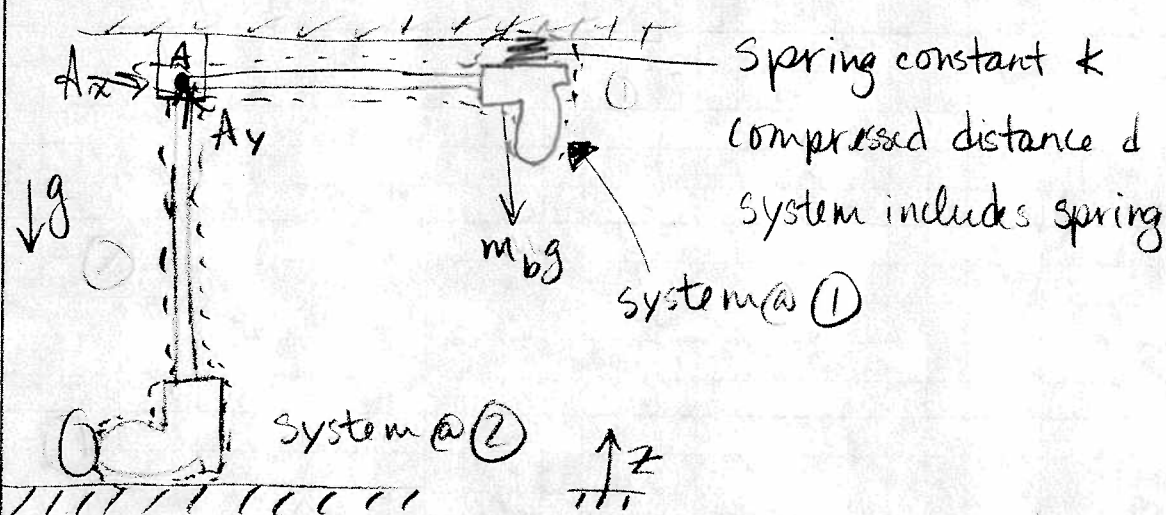 A
Ax
Ay
Spring constant k
①
compressed distance d
system includes spring
↓g
②
mbg
system @ ①
system @ ②
z